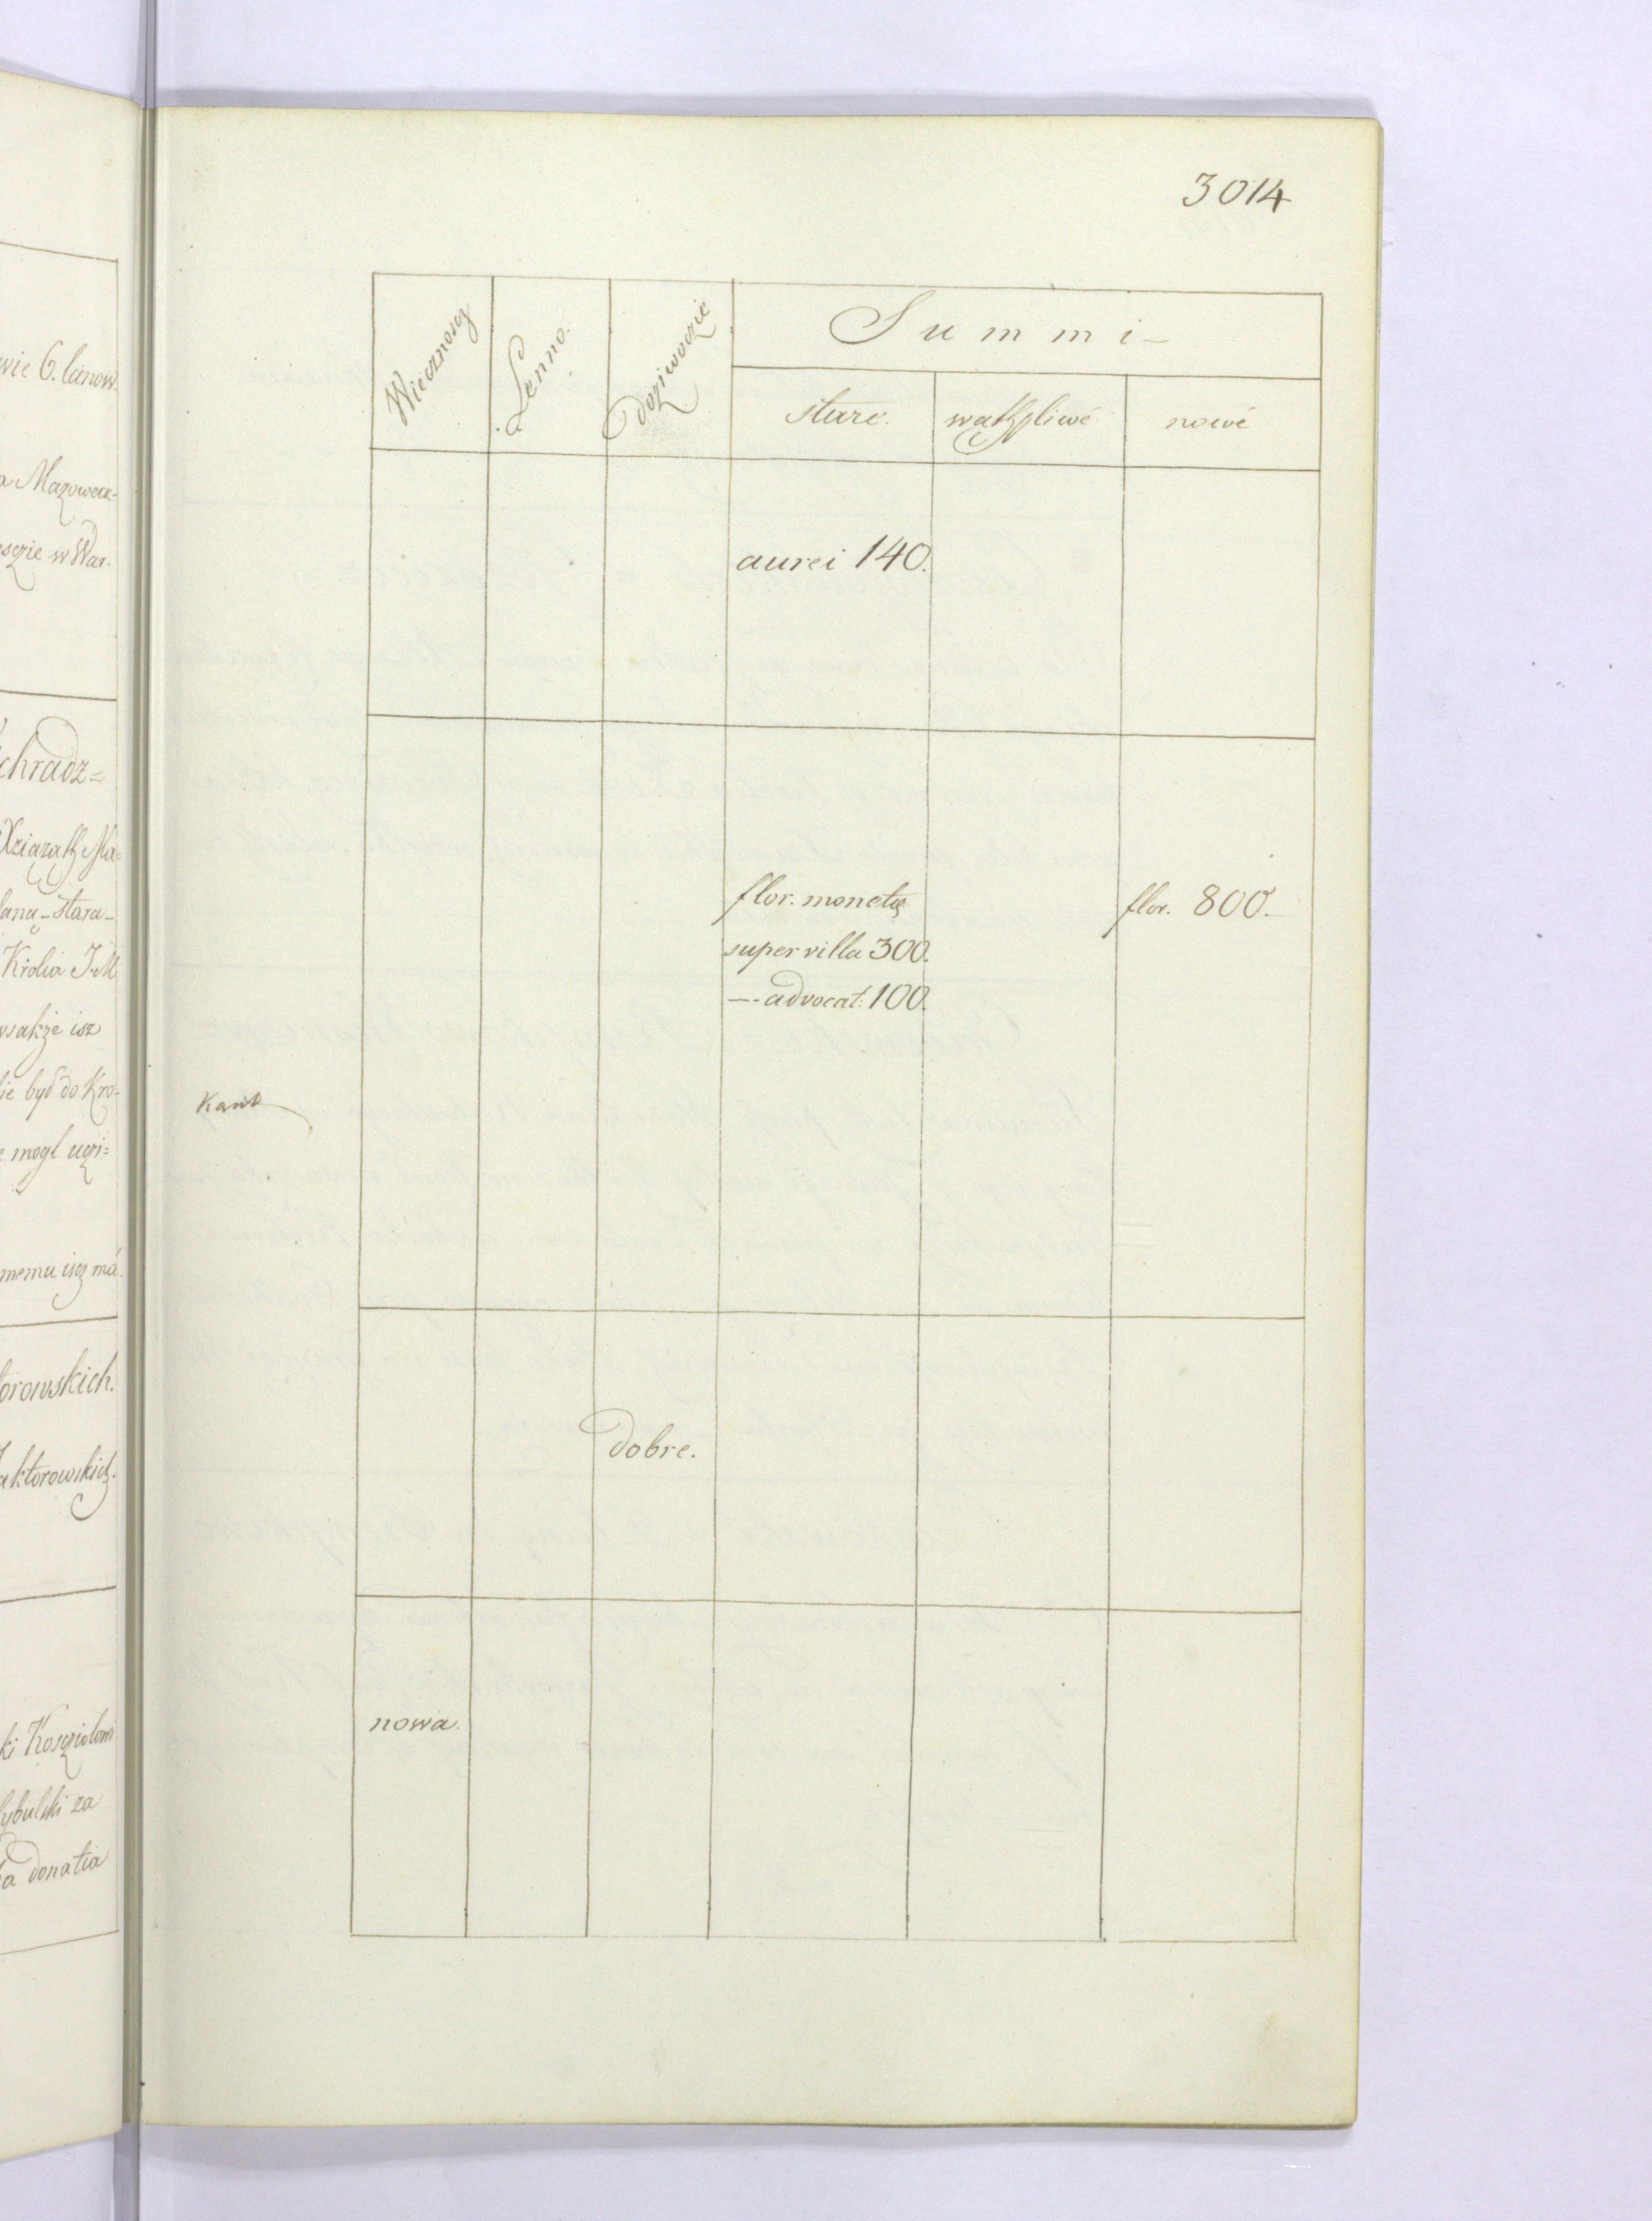 wie 6. lanow.
a Mazoweck-
sczie w War.
chradz=
Xziązątʒ Ma=
laną - stara-
Krolia J.M
wsakże isz
ie był do Kro-
e mogł uczi=
memu iscz má.
orowskich.
aktorowskich.
ki Koscziołom
ybulski za
a donatia
3014
Wiecznoscz
Lenno.
Doziwoczie
Summi-
stare.
wątʒpliwé
nowé
aurei 140.
flor. monetę
super villa 300.
—- advocat: 100.
flor. 800.
dobre.
nowa.